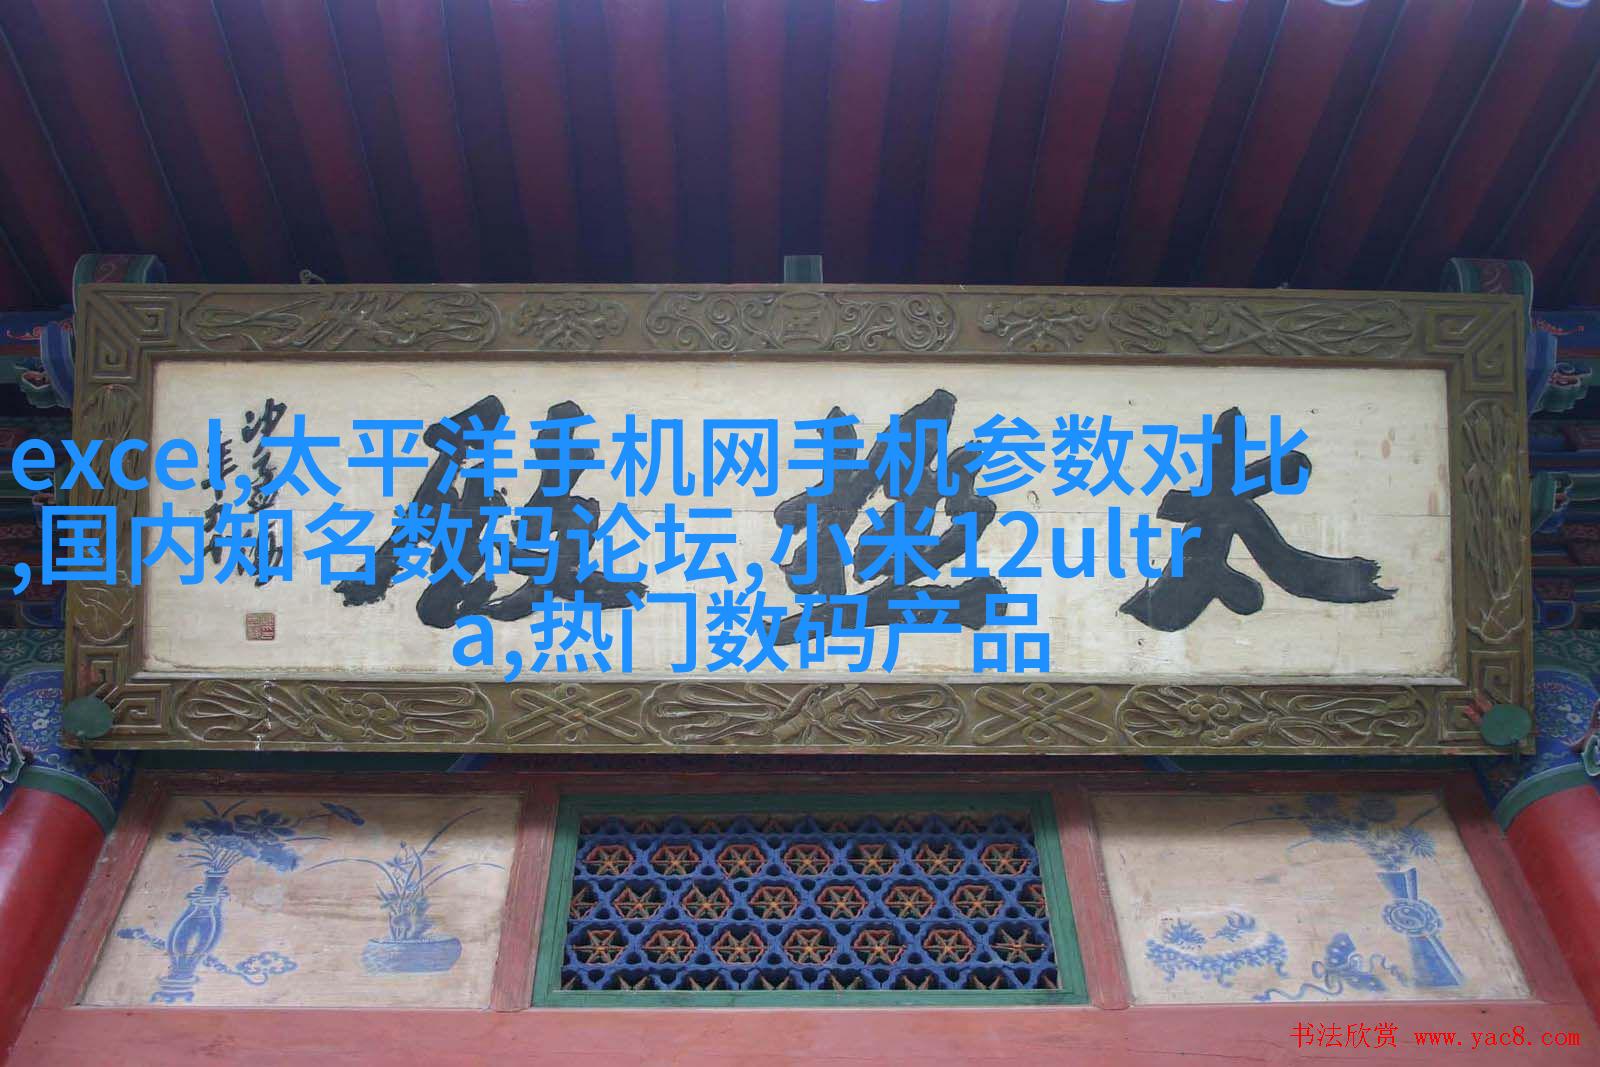 excel,太平洋手机网手机参数对比
,国内知名数码论坛,小米12ultr
a,热门数码产品
太極殿
书法欣赏 www.yac8.com